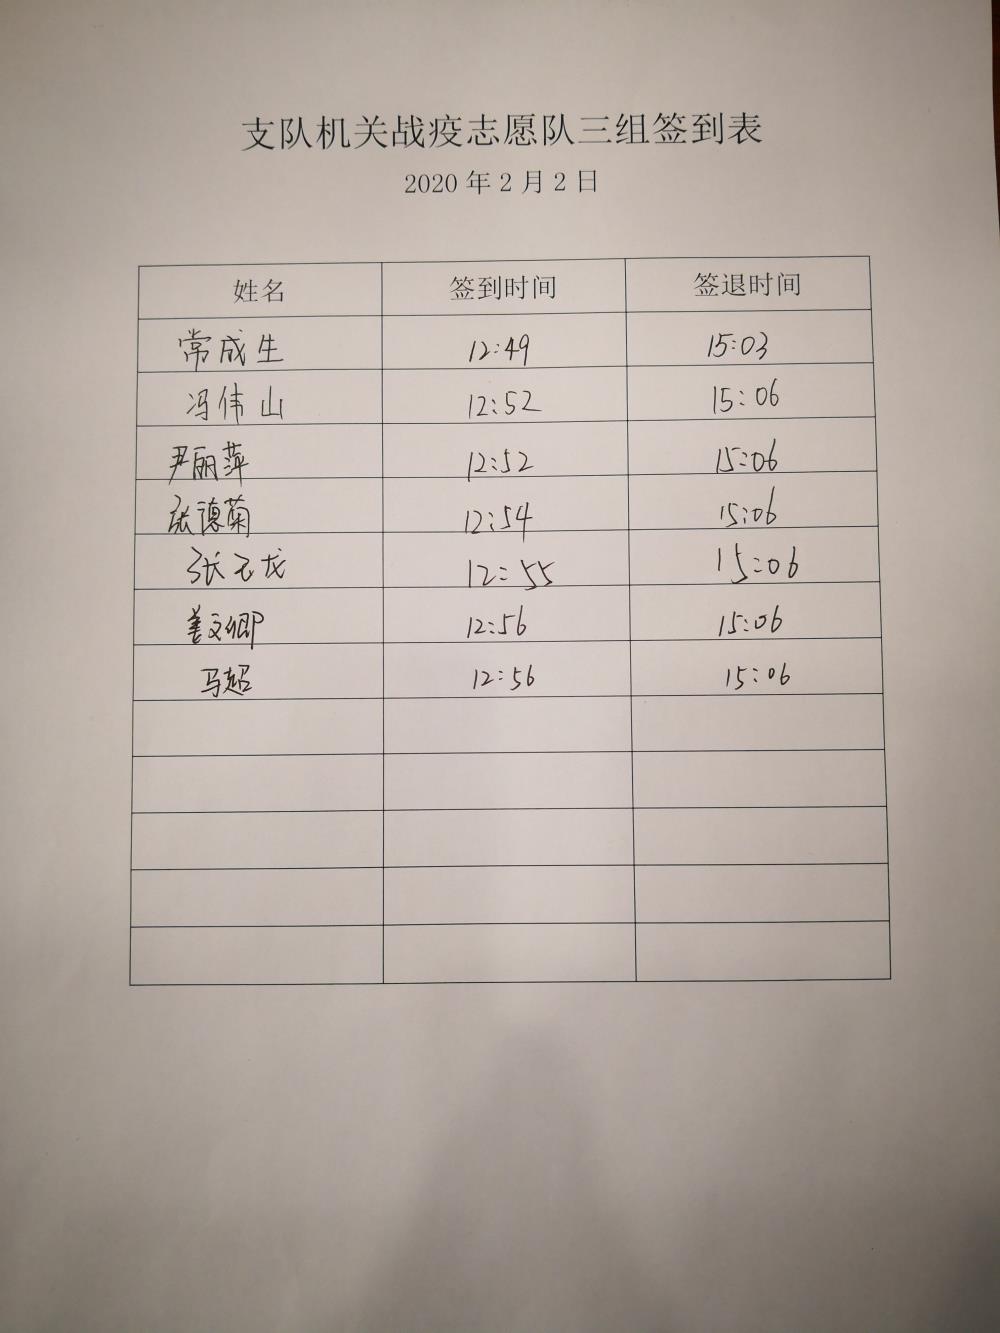 支队机关战疫志愿队三组签到表
2020年2月2日
姓名 签到时间 签退时间
常成生 12:49 15:03
冯伟山 12:52 15:06
尹丽萍 12:52 15:06
张德菊 12:54 15:06
张玉龙 12:55 15:06
姜文卿 12:56 15:06
马超 12:56 15:06